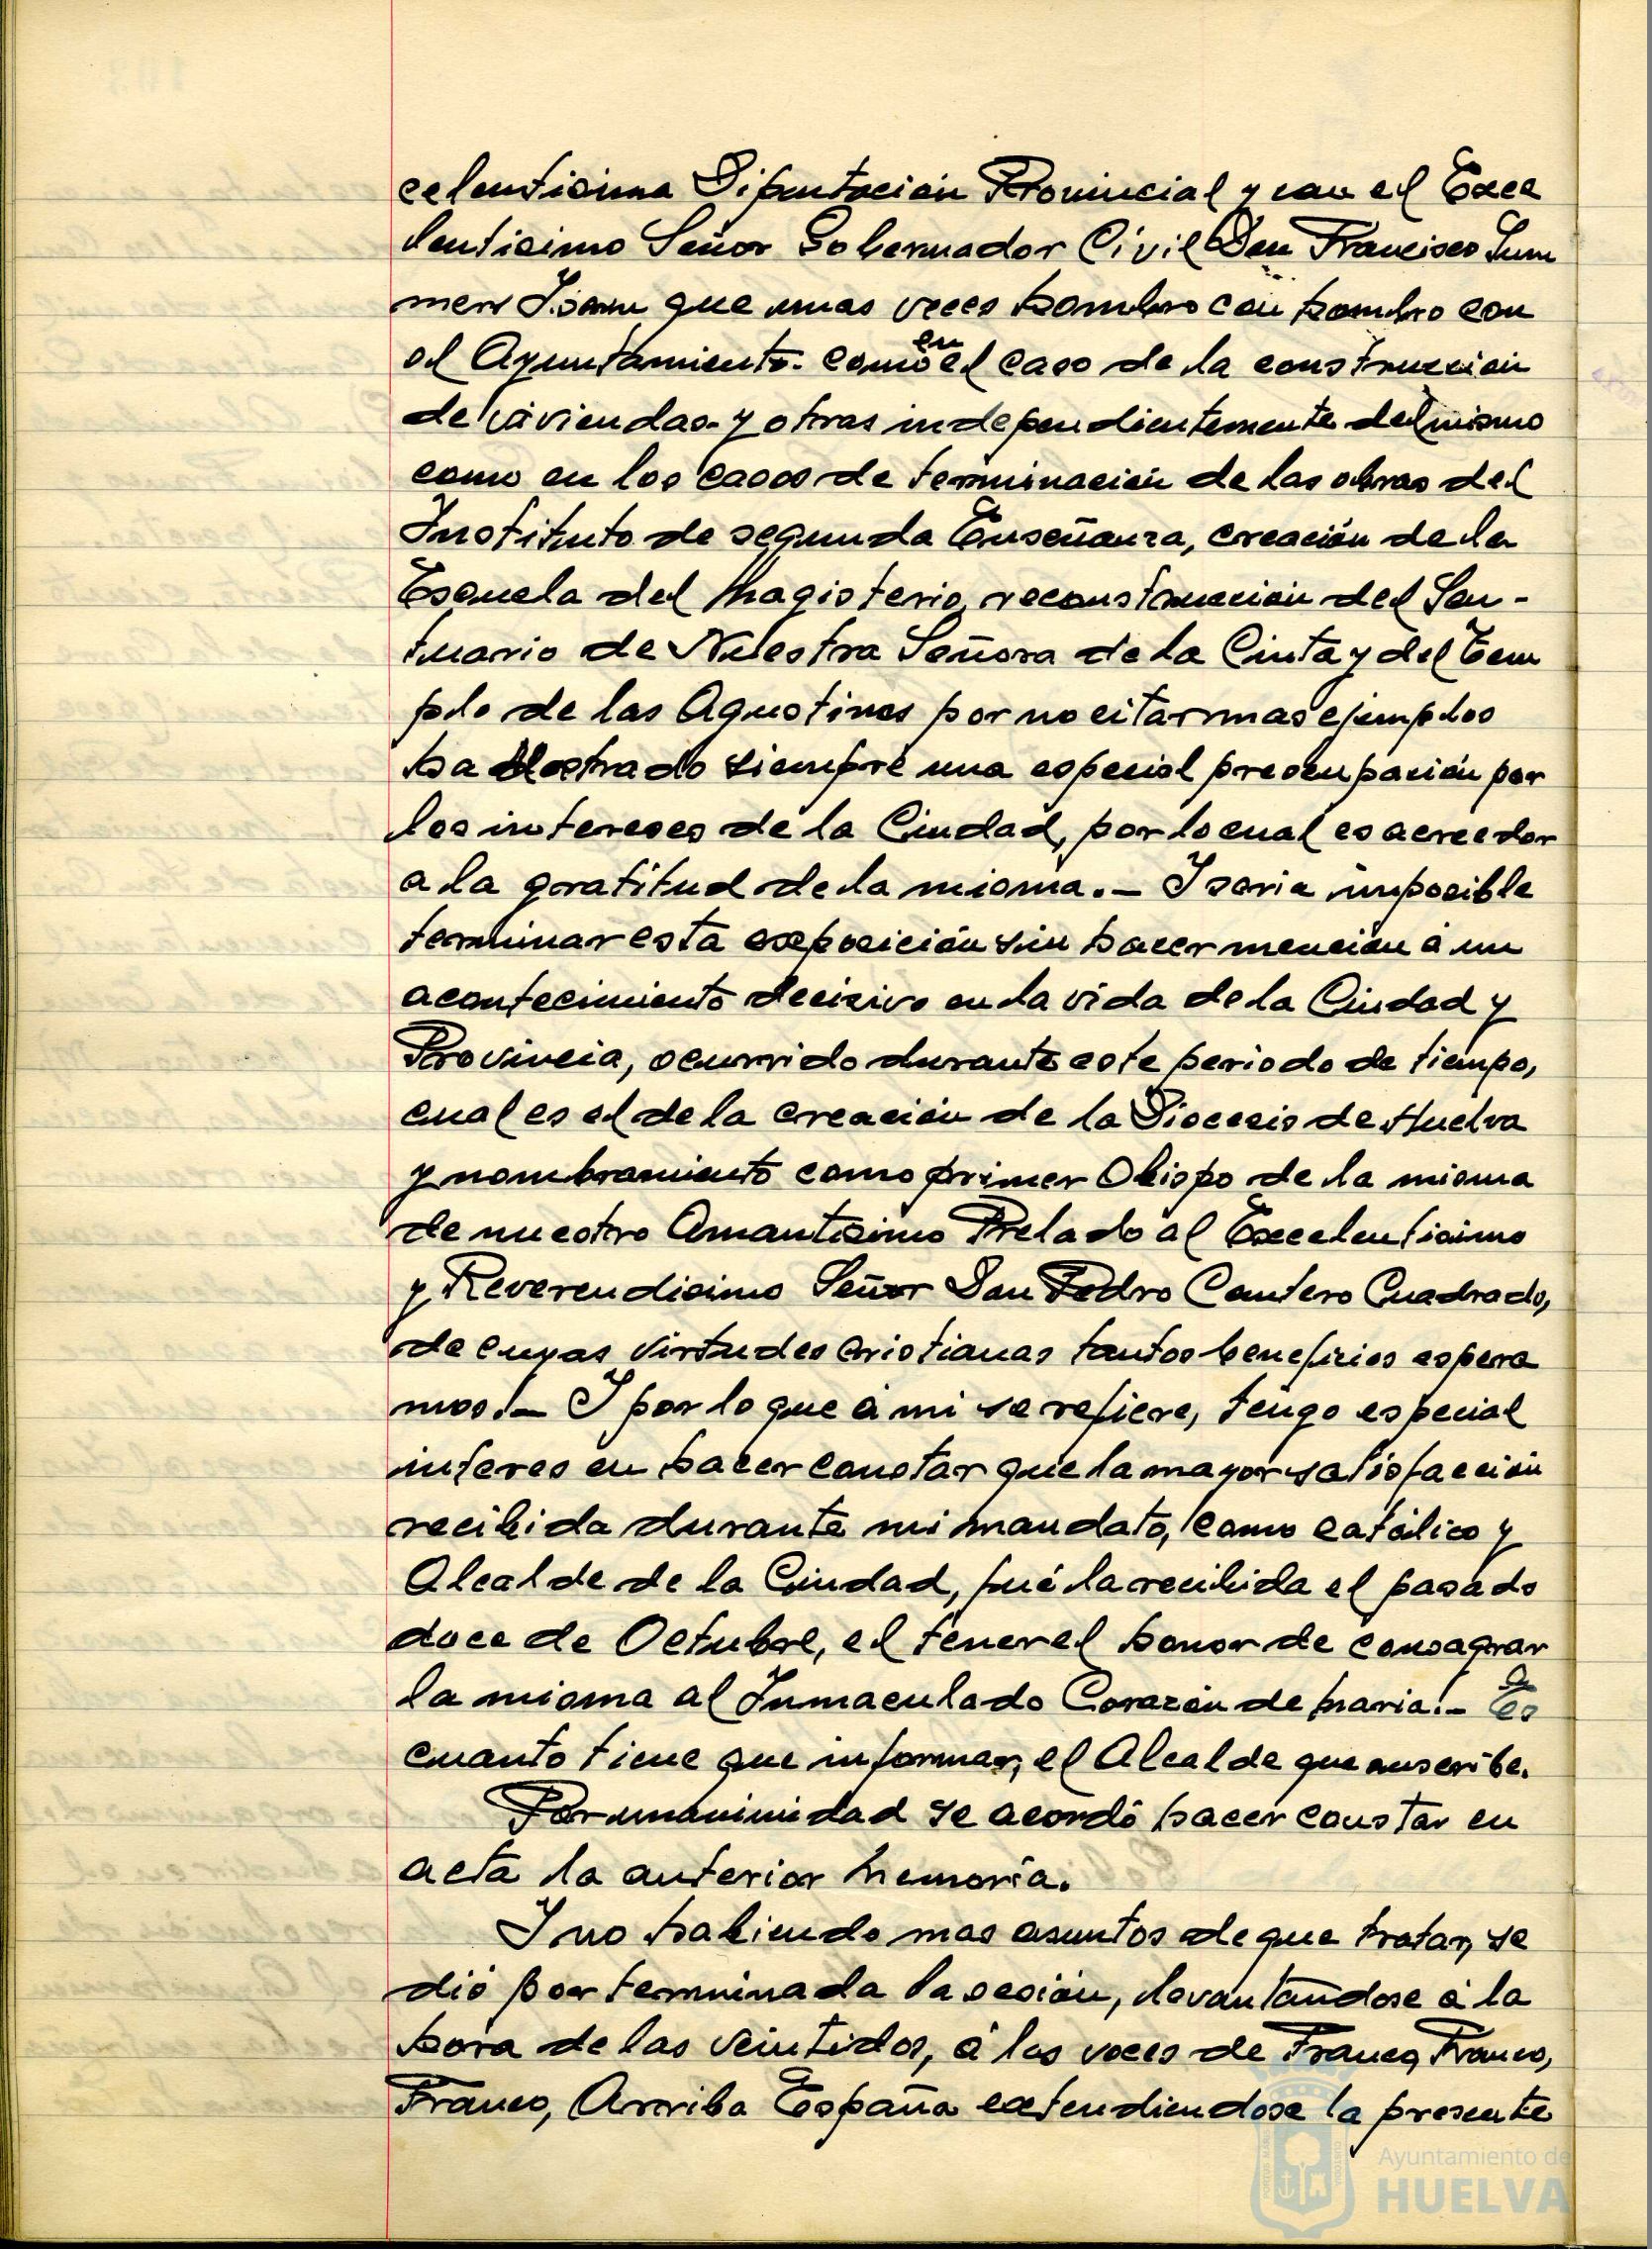 celentisima Diputación Provincial y con el Exce
lentisimo Señor Gobernador Civil Don Francisco Sum
mers Isern que unas veces hombro con hombro con
el Ayuntamiento- como en el caso de la construccion
de viviendas- y otras independientemente del mismo
como en los casos de terminación de las obras del
Instituto de segunda Enseñanza, creación de la
Escuela del Magisterio, reconstruccion del San-
tuario de Nuestra Señora de la Cinta y del Tem
plo de las Agustinas por no citar mas ejemplos
ha mostrado siempre una especial preocupación por
los intereses de la Ciudad, por lo cual es acreedor
a la gratitud de la misma.- I seria imposible
terminar esta exposición sin hacer mención á un
acontecimiento decisivo en la vida de la Ciudad y
Provincia, ocurrido durante este periodo de tiempo,
cual es el de la creación de la Diocesis de Huelva
y nombramiento como primer Obispo de la misma
de nuestro Amantisimo Prelado al Excelentisimo
y Reverendisimo Señor Don Pedro Cantero Cuadrado,
de cuyas virtudes cristianas tantos beneficios espera
mos.- I por lo que á mi se refiere, tengo especial
interes en hacer constar que la mayor satisfacción
recibida durante mi mandato, como católico y
Alcalde de la Ciudad, fué la recibida el pasado
doce de Octubre, el tener el honor de consagrar
la misma al Inmaculado Corazón de Maria.- Es
cuanto tiene que informar, el Alcalde que suscribe.
Por unanimidad se acordó hacer constar en
acta la anterior Memoria.
I no habiendo mas asuntos de que tratar, se
dió por terminada la sesión, levantandose á la
hora de las veintidos, á las voces de Franco, Franco,
Franco, Arriba España extendiendose la presente
Ayuntamiento de
HUELVA